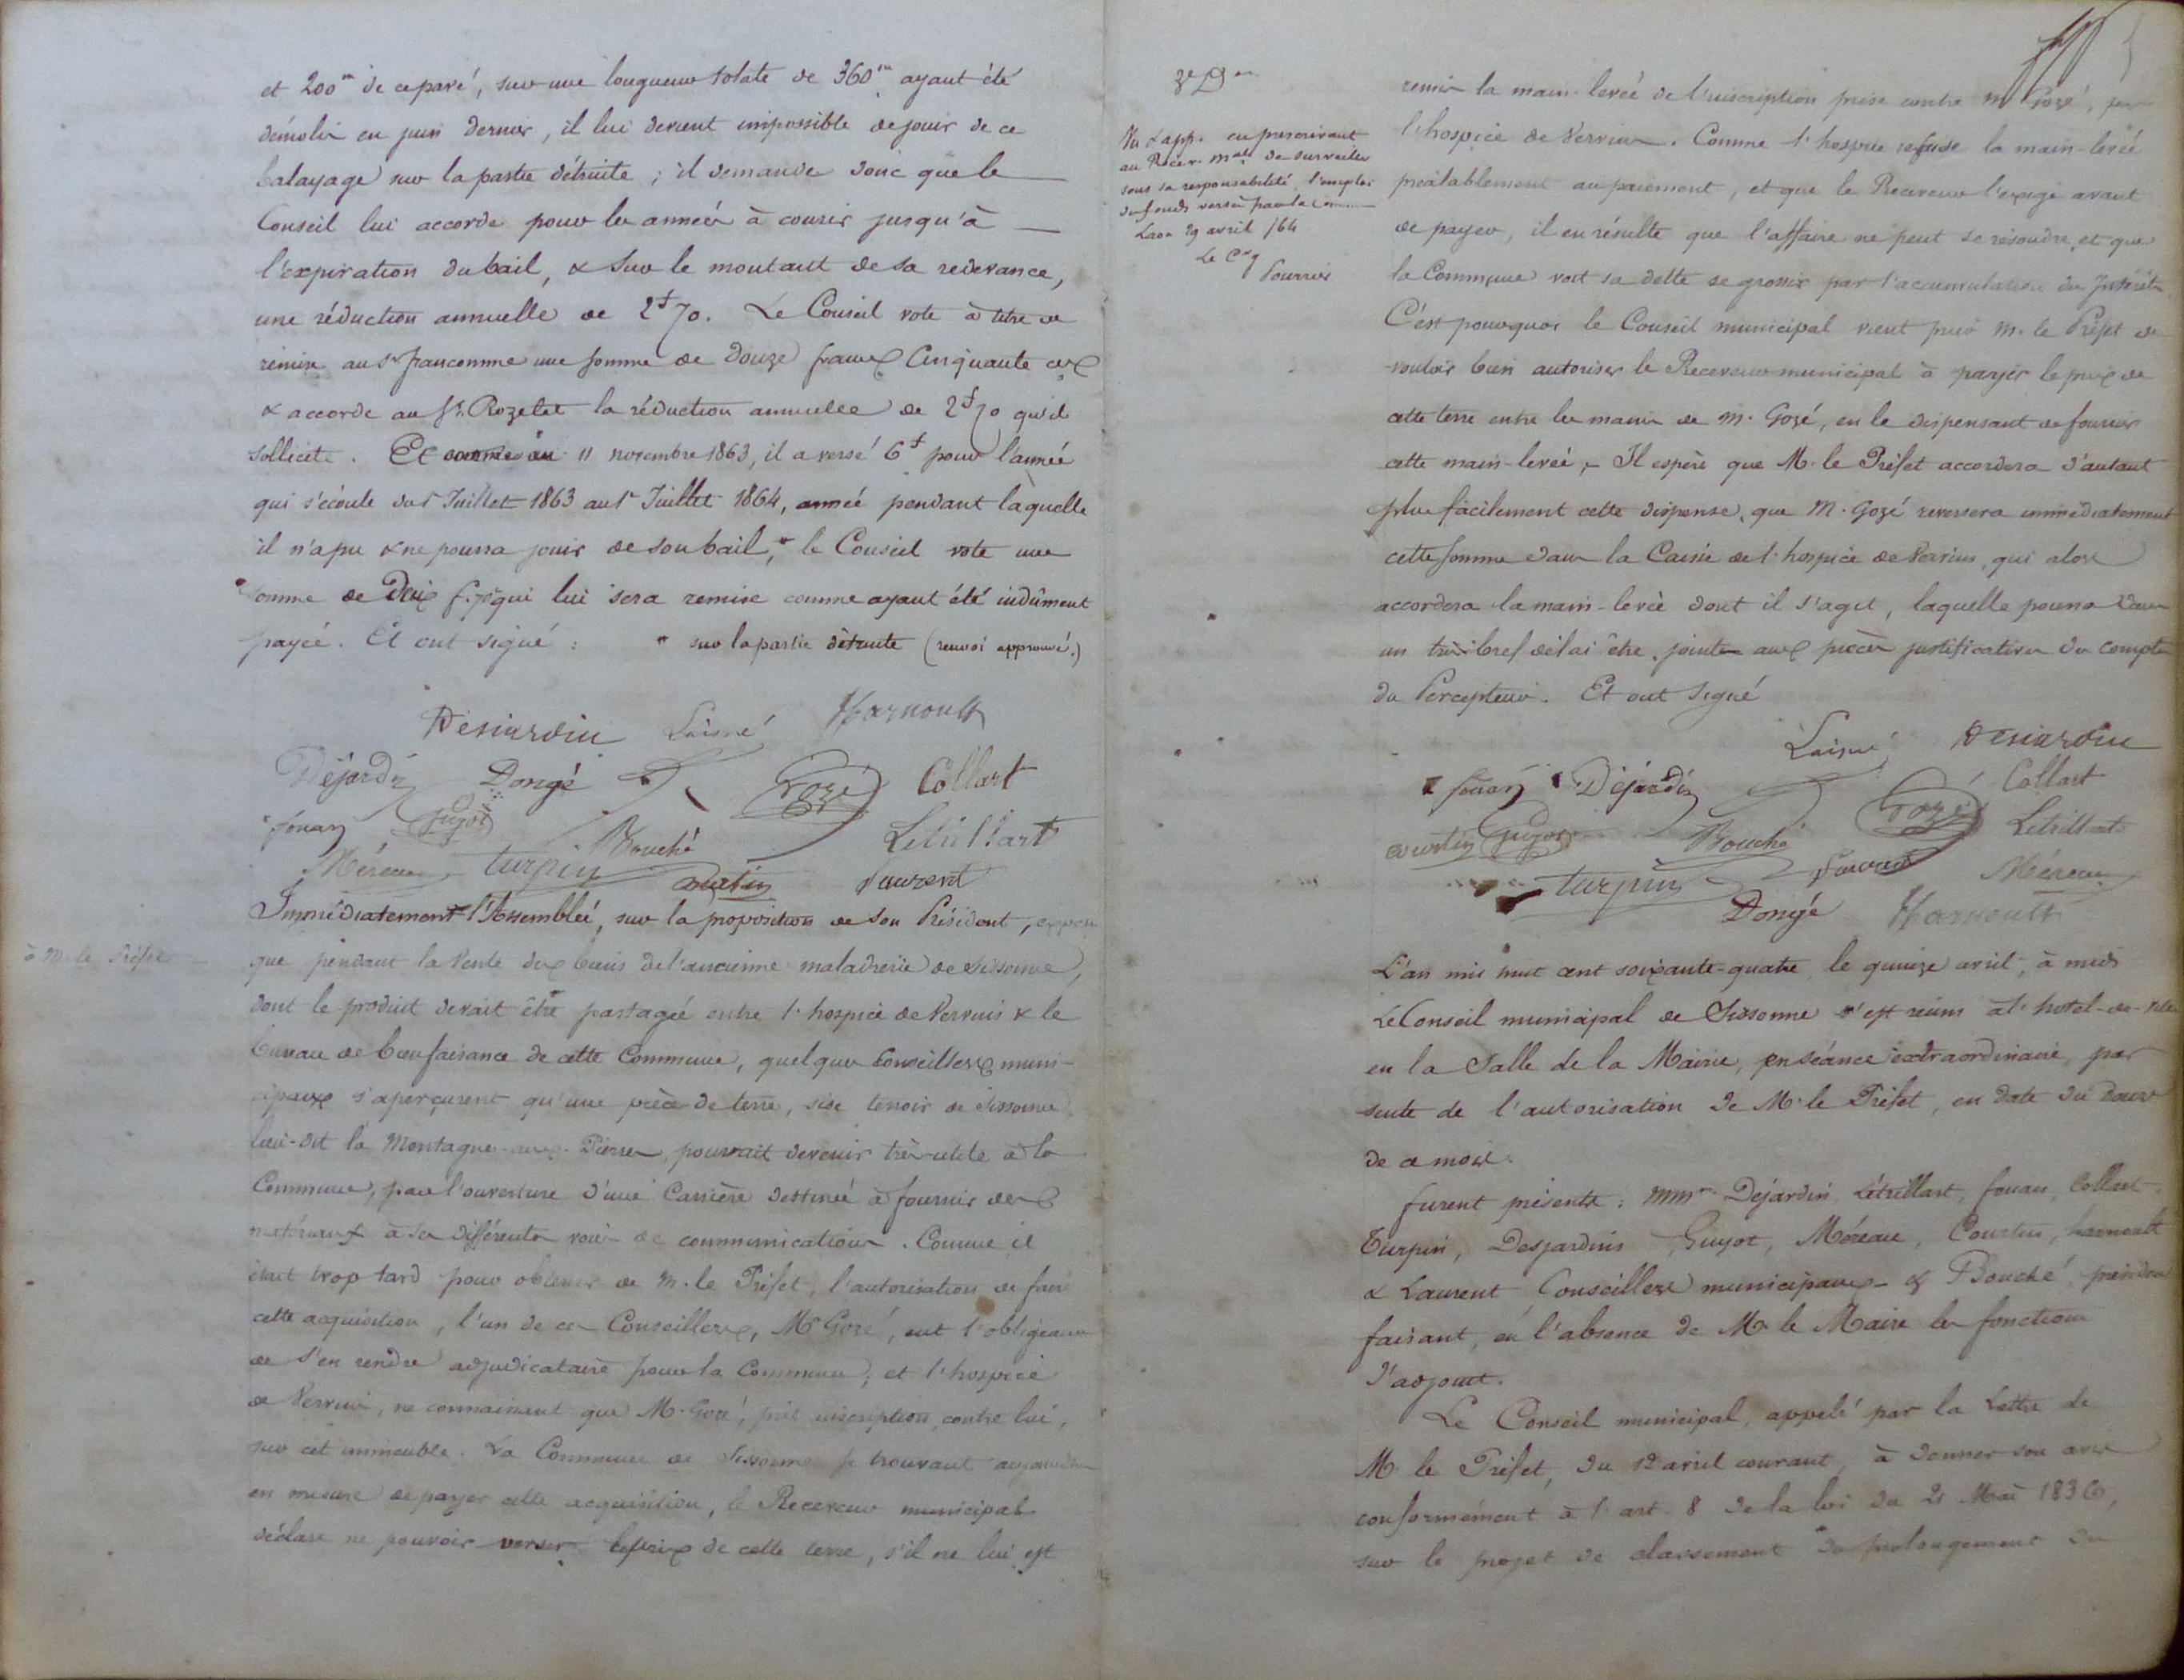 et 200m de ce pavé, sur une longueur totale de 360m ayant été
démolis en juin dernier, il lui devient impossible de jouir de ce
balayage sur la partie détruite ; il demande donc que le
Conseil lui accorde pour les années à courir jusqu'à
l'expiration du bail, & sur le montant de sa redevance,
une réduction annuelle de 2f 70. Le Conseil vote à titre de
remise au Sr francomme une somme de douze francs Cinquante ces
& accorde au Sr. Rozelet la réduction annuelle de 2f 70 qu'il
sollicite. Et comme au 11 novembre 1863, il a versé 6f pour l'année
qui s'écoule du 1r Juillet 1863 au 1r Juillet 1864, année pendant laquelle
il n'a pu & ne pourra jouir de son bail,* le Conseil vote une
somme de Deux f. 70 qui lui sera remise comme ayant été indûment
payée. Et ont signé :
* sur la partie détruite (renvoi approuvé.)
Desjardin Laisné Harnoult
Déjardin Dongé Gozé Collart
fouan Guyot Bouché Letrillart
Méreau turpin Courtin Laurent
Immédiatement l'Assemblée, sur la proposition de son Président, expose
à M. le Préfet
que pendant la Vente des biens de l'ancienne maladrerie de Sissonne,
dont le produit devait être partagé entre l'hospice de Vervins & le
bureau de bienfaisance de cette Commune, quelques Conseillers muni-
cipaux s'aperçurent qu'une pièce de terre, sise terroir de Sissonne
lieu-dit la Montagne aux Pierres, pouvait devenir très-utile à la
Commune, par l'ouverture d'une Carrière destinée à fournir des
matériaux à ses différentes voies de communications. Comme il
était trop tard pour obtenir de M. le Préfet, l'autorisation de faire
cette acquisition, l'un de ces Conseillers, Mr Gozé, eut l'obligeance
de s'en rendre adjudicataire pour la Commune, et l'hospice
de Vervins, ne connaissant que M. Gozé, prit inscription contre lui,
sur cet immeuble. La Commune de Sissonne se trouvant aujourd'hui
en mesure de payer cette acquisition, le Receveur municipal
déclare ne pouvoir verser le prix de cette terre, s'il ne lui est
Vu & app. en prescrivant
au Recev. Mal de surveiller
sous sa responsabilité l'emploi
des fonds versés par la Commune
Laon 29 avril /64
Le Cer
remis la main-levée de l'inscription prise contre Mr Gozé, par
l'hospice de Vervins. Comme l'hospice refuse la main-levée
préalablement au paiement, et que le Receveur l'exige avant
de payer, il en résulte que l'affaire ne peut se résoudre, et que
la Commune voit sa dette se grossir par l'accumulation des Intérêts
C'est pourquoi le Conseil municipal vient prier M. le Préfet de
vouloir bien autoriser le Receveur municipal à payer le prix de
cette terre entre les mains de M. Gozé, en le dispensant de fournir
cette main-levée, - Il espère que M. le Préfet accordera d'autant
plus facilement cette dispense, que M. Gozé reversera immédiatement
cette somme dans la Caisse de l'hospice de Vervins, qui alors
accordera la main-levée dont il s'agit, laquelle pourra dans
un très-bref délai être jointe aux pièces justificatives du compte
du Percepteur. Et ont signé
Laisné Desjardin
fouan Déjardin Collart
Courtin Guyot Bouché Gozé Letrillart
turpin Laurent Méreau
Dongé Harnoult
L'an mil huit cent soixante-quatre, le quinze avril, à midi
Le Conseil municipal de Sissonne s'est réuni à l'hotel-de-Ville
en la Salle de la Mairie, en séance extraordinaire, par
suite de l'autorisation de M. le Préfet, en date du douze
de ce mois.
furent présents : MMrs Déjardin, Létrillart, fouan, Collart,
Turpin, Desjardins, Guyot, Méreau, Courtin, harnoult
& Laurent Conseillers municipaux & Bouché, président
faisant, en l'absence de M. le Maire les fonctions
d'adjoint.
Le Conseil municipal, appelé par la Lettre de
M. le Préfet, du 12 avril courant, à donner son avis
conformément à l'art. 8 de la loi du 21 Mai 1836,
sur le projet de classement du prolongement du